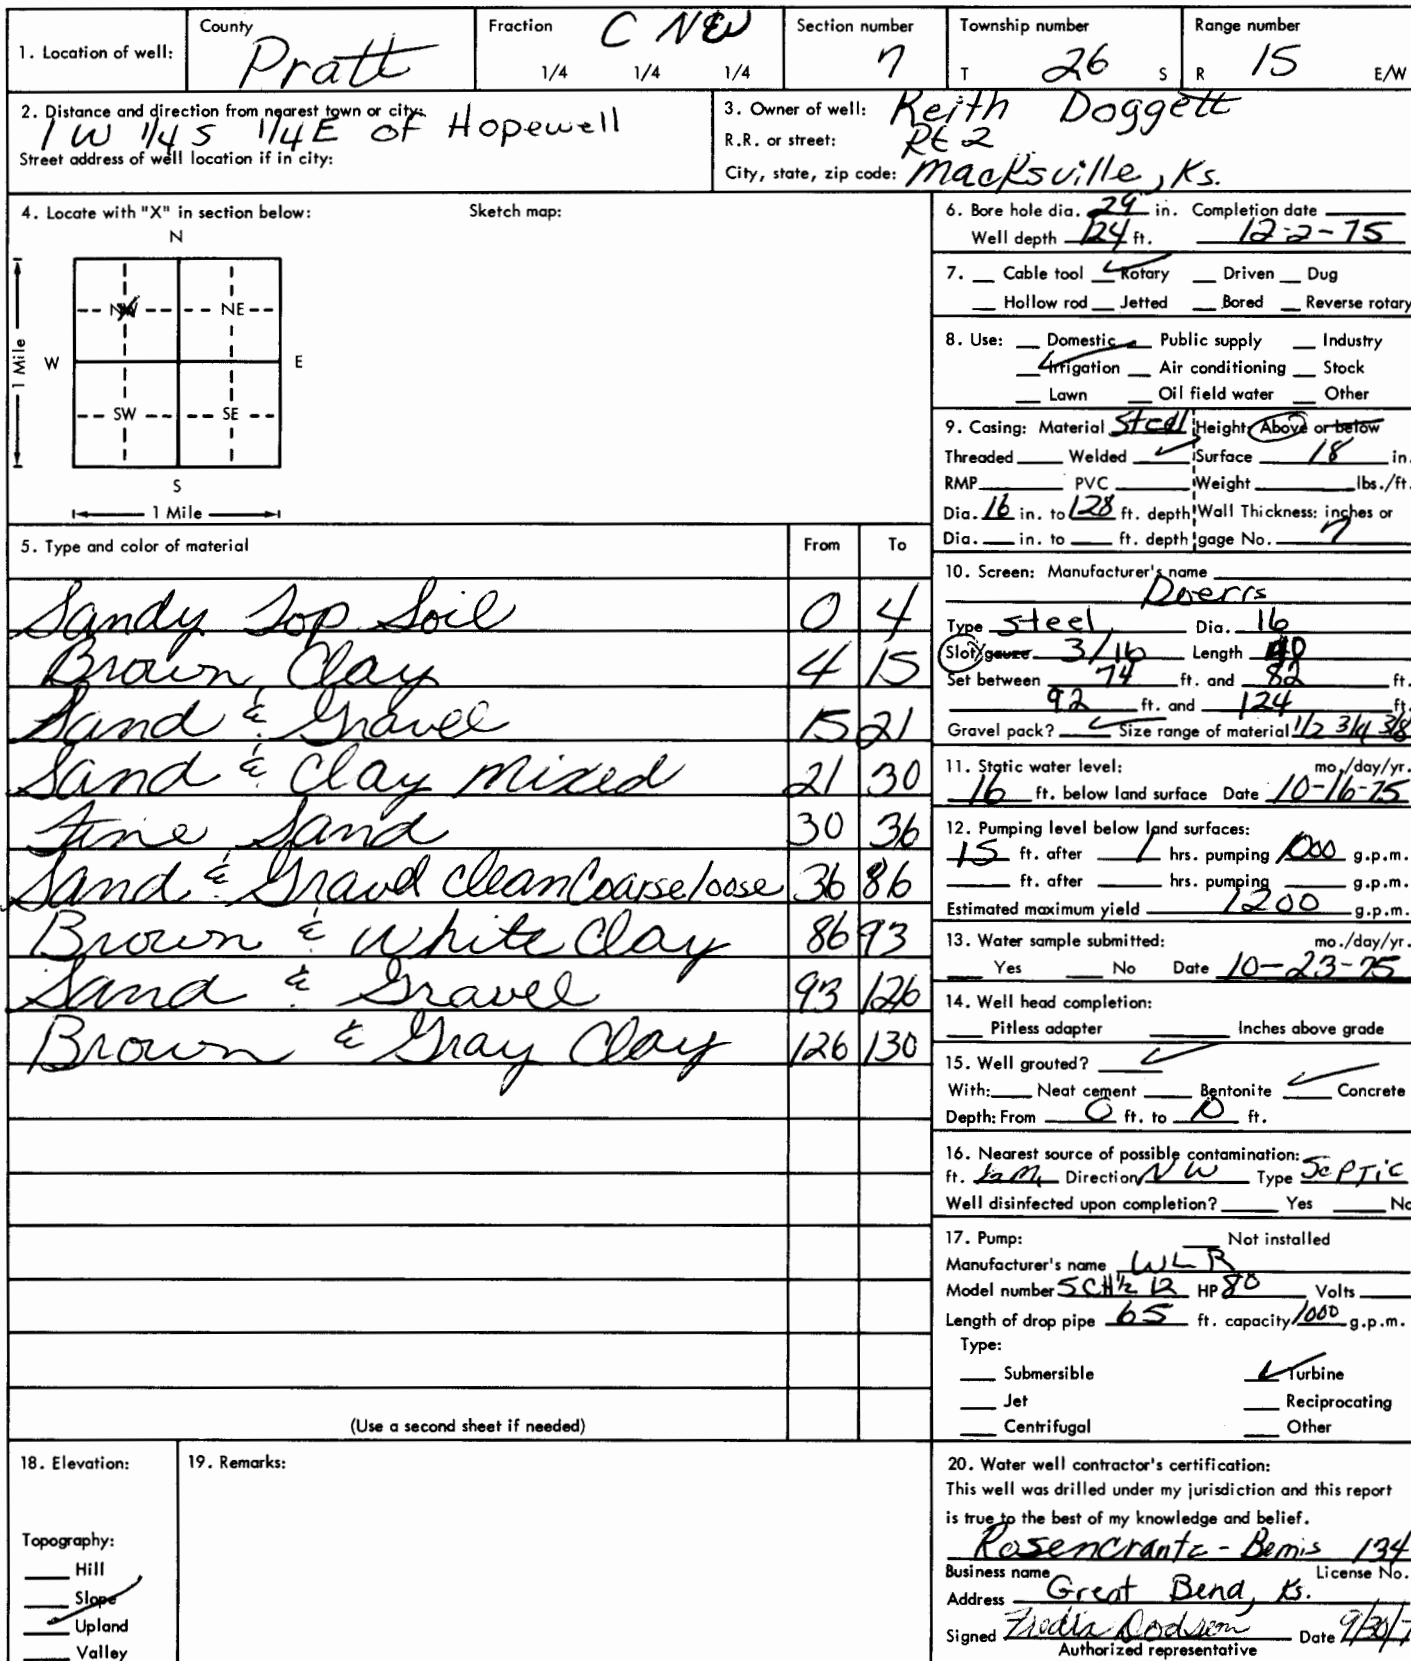 1. Location of well: County Pratt Fraction C NW 1/4 1/4 1/4 Section number 7 Township number T 26 S Range number R 15 E/W
2. Distance and direction from nearest town or city: 1 W 1/4 S 1/4 E of Hopewell
Street address of well location if in city:
3. Owner of well: Keith Doggett
R.R. or street: Rt 2
City, state, zip code: Macksville, Ks.
4. Locate with "X" in section below: Sketch map:
N
NW NE
W E
1 Mile
SW SE
S
1 Mile
5. Type and color of material From To
Sandy Top Soil 0 4
Brown Clay 4 15
Sand & Gravel 15 21
Sand & Clay Mixed 21 30
Fine Sand 30 36
Sand & Gravel clean Coarse loose 36 86
Brown & White Clay 86 93
Sand & Gravel 93 126
Brown & Gray Clay 126 130
(Use a second sheet if needed)
6. Bore hole dia. 29 in. Completion date
Well depth 124 ft. 12-2-75
7. Cable tool ✓ Rotary Driven Dug
Hollow rod Jetted Bored Reverse rotary
8. Use: Domestic Public supply Industry
✓ Irrigation Air conditioning Stock
Lawn Oil field water Other
9. Casing: Material Steel Height: Above or below
Threaded Welded ✓ Surface 18 in.
RMP PVC Weight lbs./ft.
Dia. 16 in. to 128 ft. depth Wall Thickness: inches or
Dia. in. to ft. depth gage No. 7
10. Screen: Manufacturer's name
Doerrs
Type steel Dia. 16
Slot/gauze 3/16 Length 40
Set between 74 ft. and 82 ft.
92 ft. and 124 ft.
Gravel pack? ✓ Size range of material 1/2 3/4 3/8
11. Static water level: mo./day/yr.
16 ft. below land surface Date 10-16-75
12. Pumping level below land surfaces:
15 ft. after 1 hrs. pumping 1000 g.p.m.
ft. after hrs. pumping g.p.m.
Estimated maximum yield 1200 g.p.m.
13. Water sample submitted: mo./day/yr.
Yes No Date 10-23-75
14. Well head completion:
Pitless adapter Inches above grade
15. Well grouted? ✓
With: Neat cement Bentonite ✓ Concrete
Depth: From 0 ft. to 10 ft.
16. Nearest source of possible contamination:
ft. 1/2 M. Direction NW Type Septic
Well disinfected upon completion? Yes No
17. Pump: Not installed
Manufacturer's name WLR
Model number HP 80 Volts
Length of drop pipe 65 ft. capacity 1000 g.p.m.
Type:
Submersible ✓ Turbine
Jet Reciprocating
Centrifugal Other
18. Elevation:
Topography:
Hill
Slope
✓ Upland
Valley
19. Remarks:
20. Water well contractor's certification:
This well was drilled under my jurisdiction and this report
is true to the best of my knowledge and belief.
Rosencrantz - Bemis 134
Business name License No.
Address Great Bend, Ks.
Signed Dodson Date 9/30/7
Authorized representative